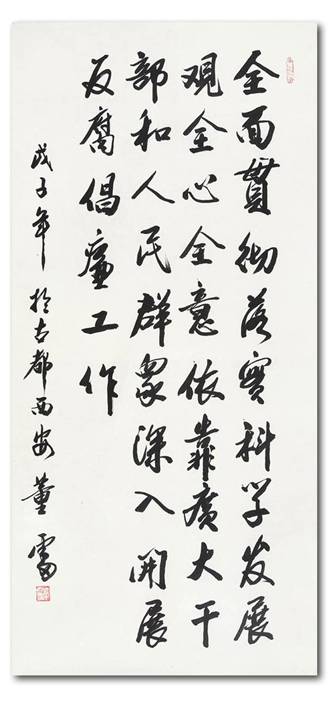 全面貫彻落實科学发展
观全心全意依靠廣大干
部和人民群眾深入開展
反腐倡廉工作
戊子年於古都西安董雷